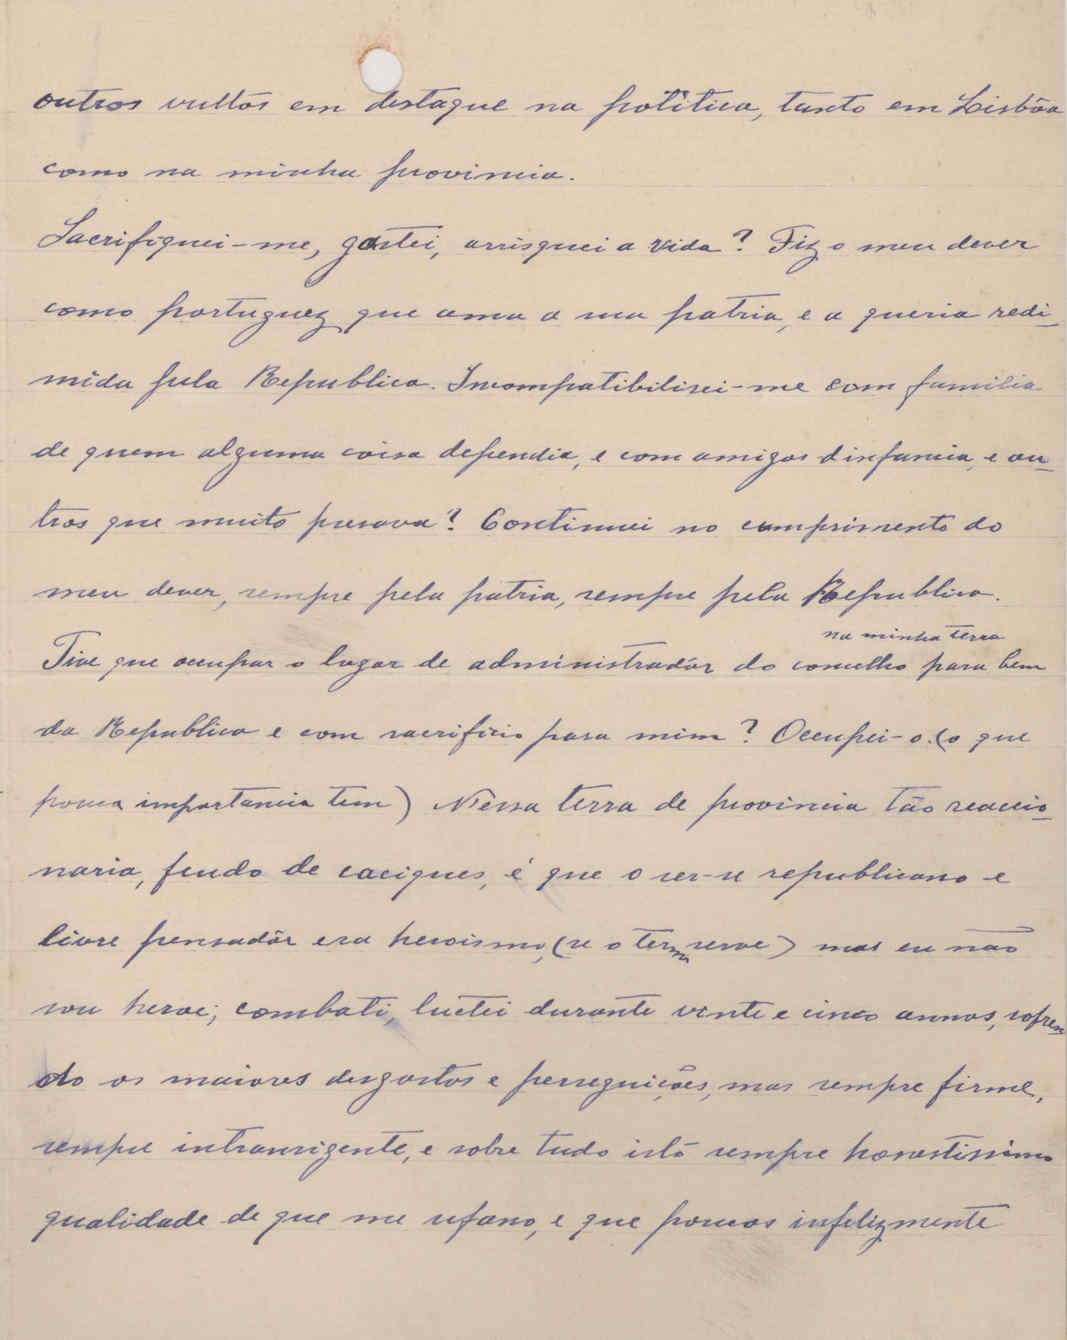 outros vultos em destaque na politica, tanto em Lisbôa
como na minha provincia.
Sacrifiquei-me, gastei, arrisquei a vida? Fiz o meu dever
como portuguez que ama a sua patria, e a queria redi-
mida pela Republica. Incompatibilisei-me com familia
de quem alguma coisa dependia, e com amigos d'infancia, e ou-
tros que muito presava? Continuei no cumprimento do
meu dever, sempre pela patria, sempre pela Republica.
na minha terra
Tive que occupar o logar de administradôr do concelho para bem
da Republica e com sacrificio para mim? Occupei-o. (o que
pouca importancia tem) N'essa terra de provincia tão reaccio-
naria, feudo de caciques, é que o ser-se republicano e
livre pensadôr era heroismo, (se o termo serve) mas eu não
sou heroe; combati, luctei durante vinte e cinco annos, sofren-
do os maiores desgostos e perseguições, mas sempre firme,
sempre intransigente, e sobre tudo isto sempre honestissimo
qualidade de que me ufano, e que poucos infelizmente